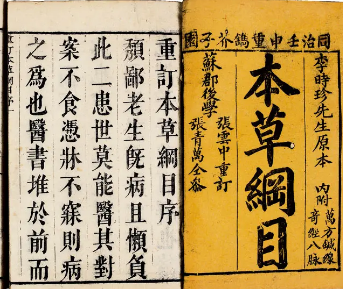 同治壬申重鐫芥子園
李時珍先生原本
內附萬方鍼線
奇經八脉
本草綱目
張雲中重訂
蘇郡後學
張青萬全參
重訂本草綱目序
頹鄙老生旣病且懶負
此二患世莫能醫其對
案不食憑牀不寐則病
之爲也醫書堆於前而